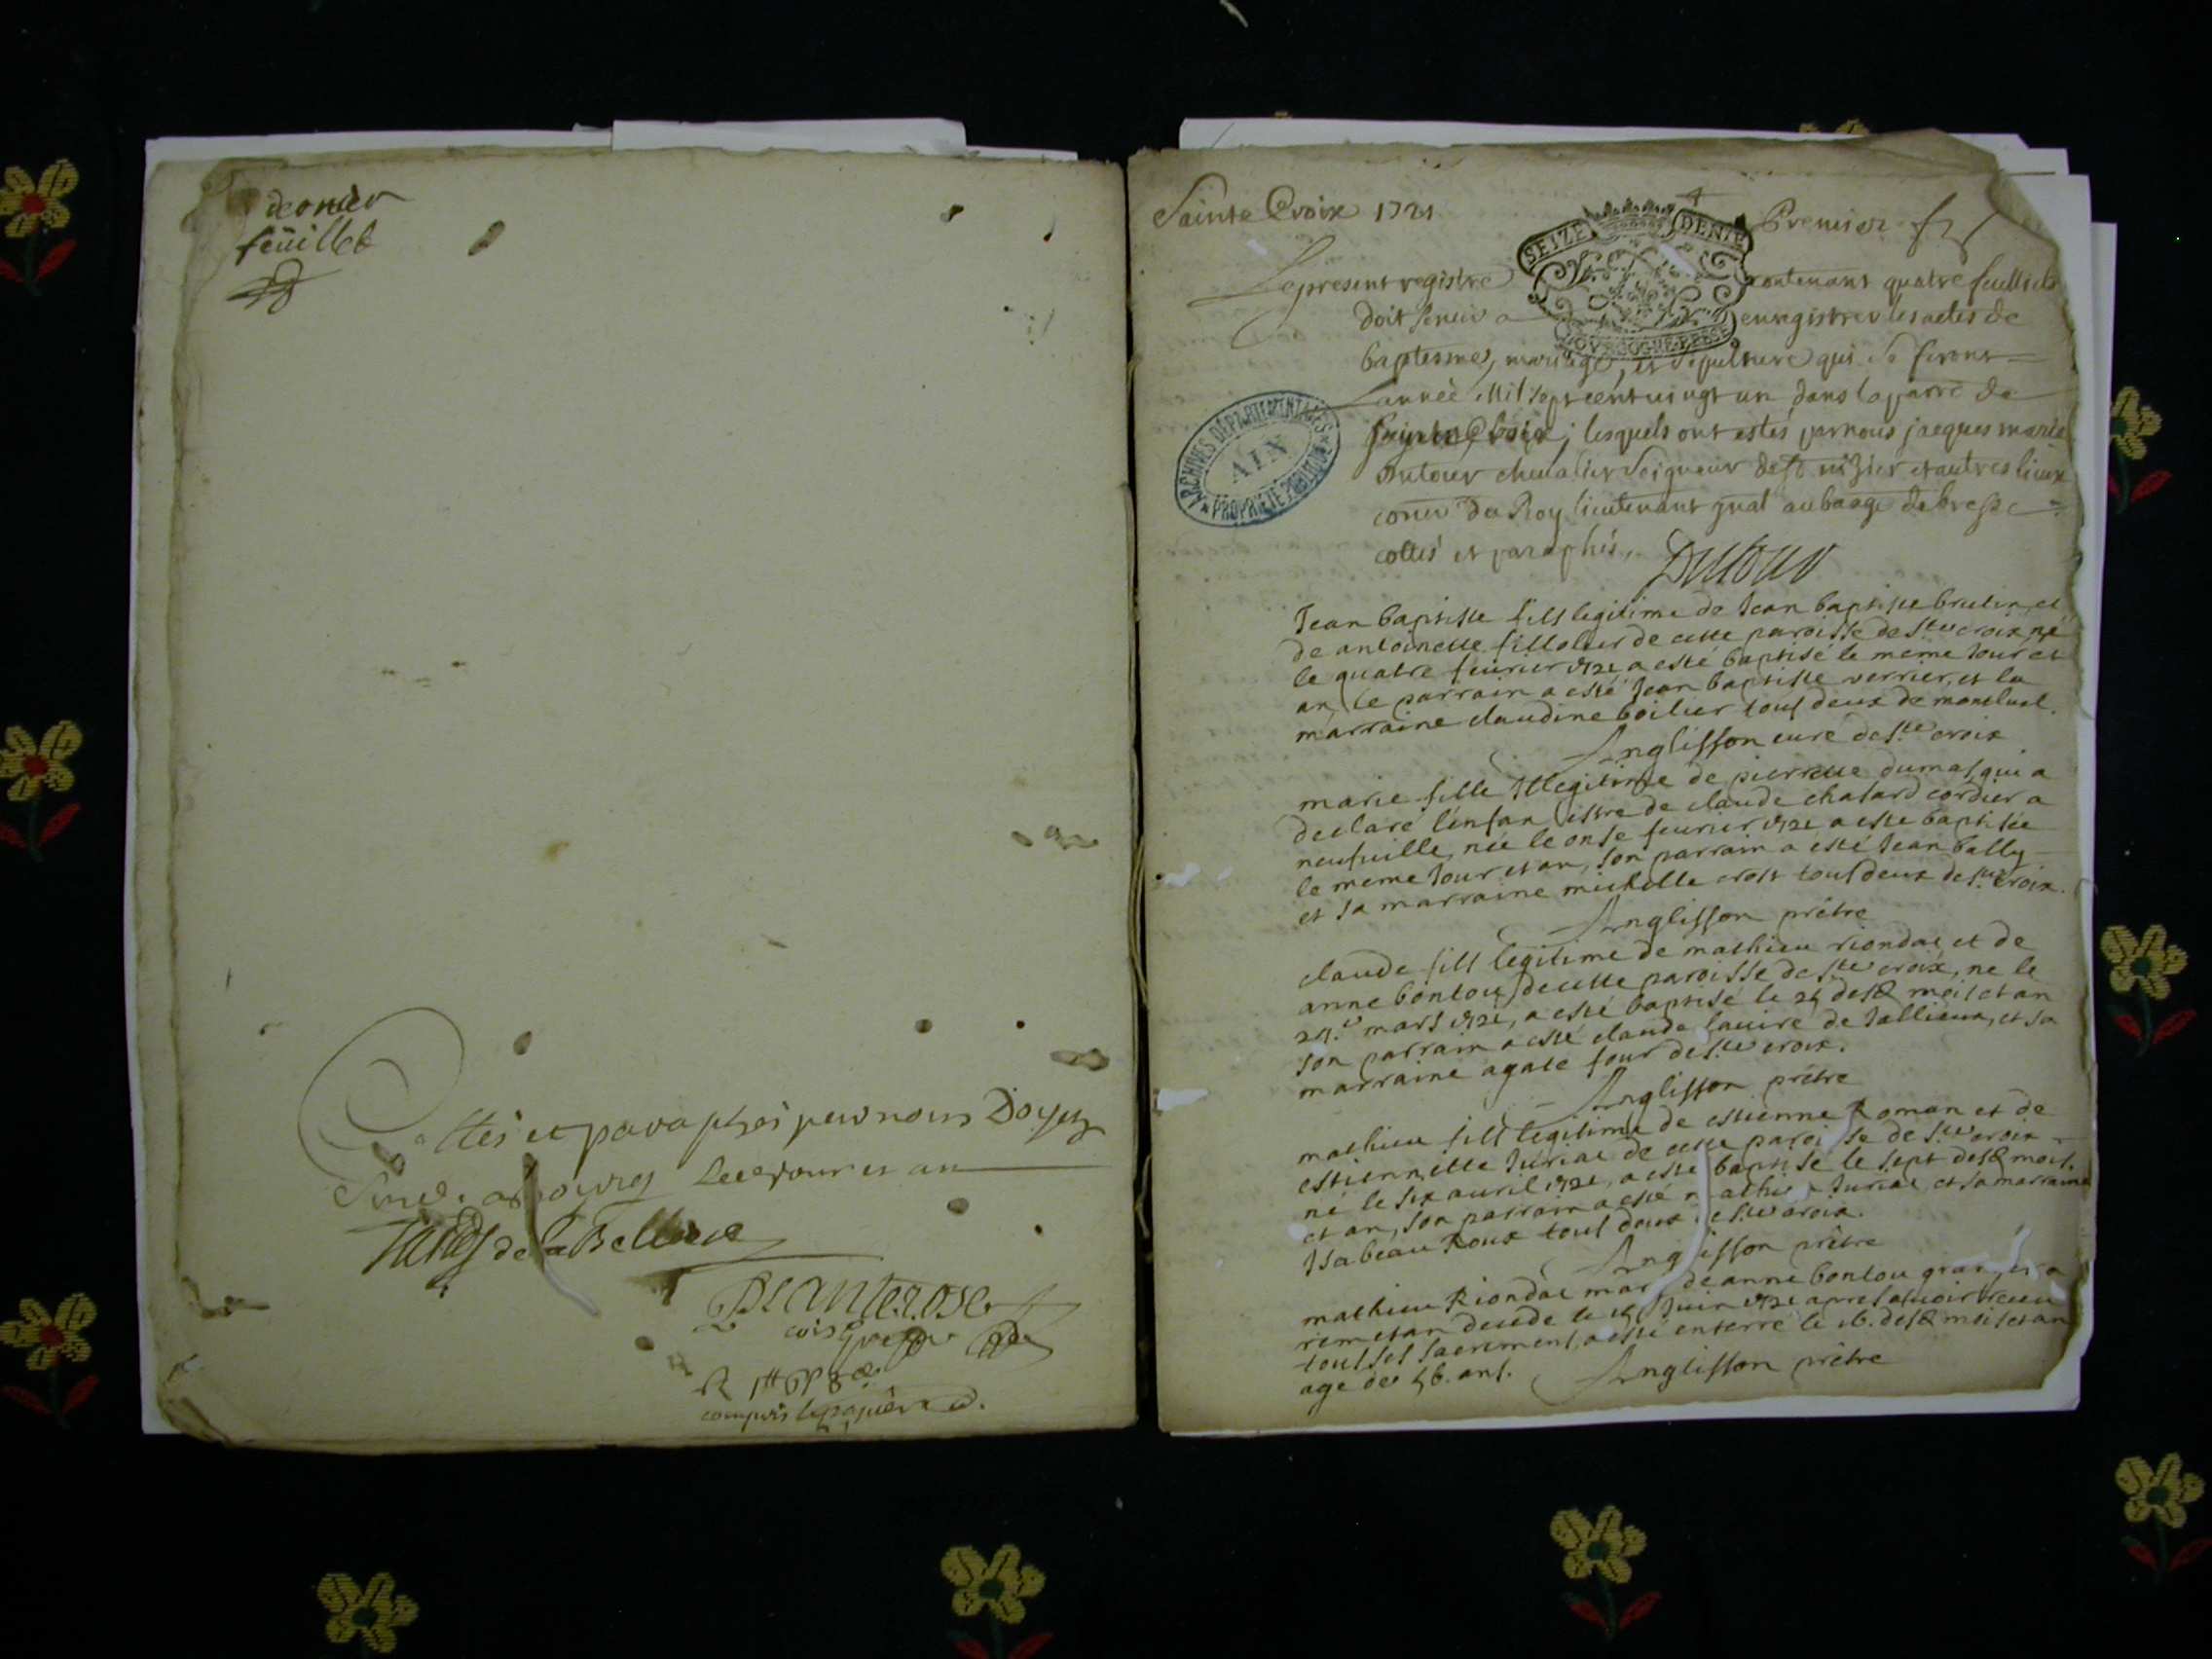 dernier
feüillet
Cottés et paraphés par nous Doyen
a bourg lesd jour et an
de la Belliere
Planterose
compris le papier
Sainte Croix 1721
Premier
SEIZE DENIE
Le present registre contenant quatre feuillets
doit servir a enregistrer les actes de
BOVRGOGNE BRESSE
baptesmes, mariage, et sepulture qui se feront
année Mil sept cent vingt un dans la parre de
Sainte Croix; lesquels ont estés par nous jacques marie
Dutour chevalier Seigneur de St nizier et autres lieux
coner du Roy lieutenant gnal au baage de bresse
cottés et paraphés.
ARCHIVES DÉPARTEMENTALES
AIN
PROPRIÉTÉ PUBLIQUE
Dutour
Jean baptiste fils legitime de Jean baptiste brutin et
de antoinette fillolier de cette paroisse de Ste croix né
le quatre feurier 1721 a esté baptisé le même Jour et
an, le parrain a esté Jean baptiste verrier, et la
marraine claudine boilier tous deux de monluel.
Anglisson curé de Ste croix
marie fille Illegitime de pierrette dumas qui a
declaré l'enfan estre de claude chatard cordier a
neufuille, née le onse feurier 1721 a esté baptisée
le meme Jour et an, son parrain a esté Jean bally
et sa marraine michelle crost tous deux de Ste croix.
Anglisson prêtre
claude fils legitime de mathieu riondat et de
anne bontou de cette paroisse de Ste croix, né le
mars 1721, a esté baptisé le 25 desd mois et an
son parrain a esté claude de Jallieux, et sa
marraine agate four de Ste croix.
Anglisson prêtre
mathieu fils legitime de estienne Roman et de
estiennette Juriat de cette paroisse de Ste croix
né le six auril 1721, a esté baptisé le sept desd mois
et an, son parrain a esté mathieu Juriat, et sa marraine
Isabeau Roux tous deux de Ste croix.
Anglisson prêtre
mathieu Riondat mary de anne bontou granger a
rimetan decede le 15 Juin 1721 apres auoir receu
tous ses sacremens, a esté enterré le 16. desd mois et an
age de 56. ans. Anglisson prêtre